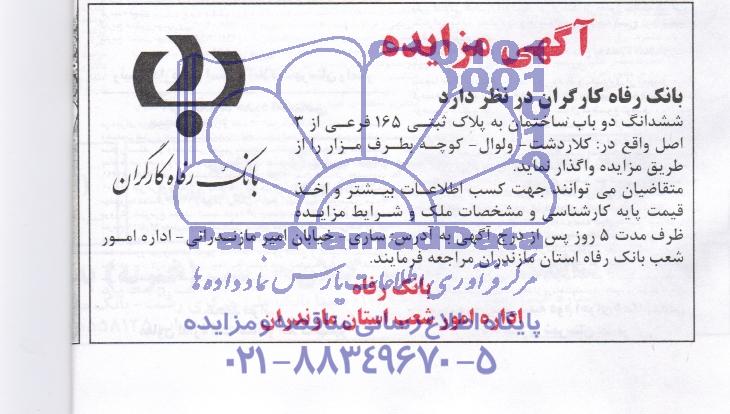 آگهی مزایده
بانک رفاه کارگران در نظر دارد
ششدانگ دو باب ساختمان به پلاک ثبتی ۱۶۵ فرعی از ۳
اصل واقع در: کلاردشت- ولوال- کوچه بطرف مزار را از
طریق مزایده واگذار نماید.
متقاضیان می توانند جهت کسب اطلاعات بیشتر و اخذ
قیمت پایه کارشناسی و مشخصات ملک و شرایط مزایده
ظرف مدت ۵ روز پس از درج آگهی به آدرس: ساری - خیابان امیر مازندرانی - اداره امور
شعب بانک رفاه استان مازندران مراجعه فرمایند.
بانک رفاه
اداره امور شعب استان مازندران
بانک رفاه کارگران
ParsNamadData
مرکز فرآوری اطلاعات پارس نماد داده ها
پایگاه اطلاع رسانی مناقصه و مزایده
۰۲۱-۸۸۳۴۹۶۷۰-۵